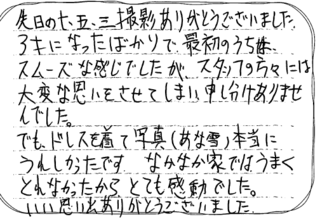 先日の七、五、三撮影ありがとうございました。
3才になったばかりで、最初のうちは、
スムーズな感じでしたが、スタッフの方々には
大変な思いをさせてしまい申し分けありませ
んでした。
でも、ドレスを着て写真(あな雪)本当に
うれしかったです なかなか家ではうまく
とれなかったから とても感動でした。
いい思い出ありがとうございました